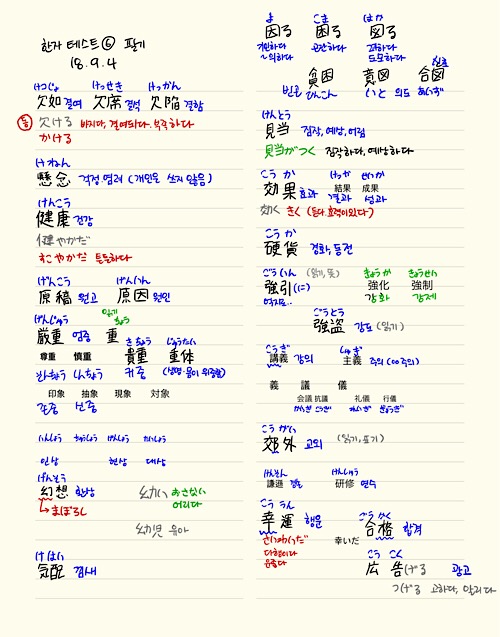 한자 테스트 ⑥ 필기
18.9.4
けつじょ けっせき けっかん
欠如 결여 欠席 결석 欠陥 결함
欠ける 빠지다, 결여되다. 부족하다
かける
けねん
懸念 걱정 염려 (개인은 쓰지 않음)
けんこう
健康 건강
健やかだ
すこやかだ 튼튼하다
げんこう げんいん
原稿 원고 原因 원인
げんじゅう
厳重 엄중 重 ちょう
きちょう じゅうたい
尊重 慎重 貴重 重体
そんちょう しんちょう 귀중
印象 抽象 現象 対象
いんしょう ちゅうしょう げんしょう たいしょう
인상 현상 대상
げんそう
幻想 환상 幼い おさない
어리다
→まぼろし
幼児 유아
けはい
気配 낌새
よ こま はか
因る 困る 図る
기인하다 곤란하다 꾀하다
~의하다 도모하다
貧困 意図 合図
빈곤 ひんこん いと 의도 あいず
けんとう
見当 짐작, 예상, 어림
見当がつく 짐작하다, 예상하다
こうか けっか せいか
効果 효과 結果 成果
결과 성과
効く きく (듣다. 효력이 있다)
こうか
硬貨 경화, 동전
ごういん きょうか きょうせい
強引(に) 強化 強制
억지로.. 강화 강제
ごうとう
強盗 강도 (읽기)
こうぎ しゅぎ
講義 강의 主義 주의 (00주의)
義 議 儀
会議 抗議 礼儀 行儀
かいぎ こうぎ れいぎ ぎょうぎ
こうがい
郊外 교외 (읽기, 표기)
けんそん けんしゅう
謙遜 겸손 研修 연수
こううん ごうかく
幸運 행운 幸いだ 合格 합격
さいわいだ
다행이다
こうこく
広告 광고
つげる 고하다, 알리다